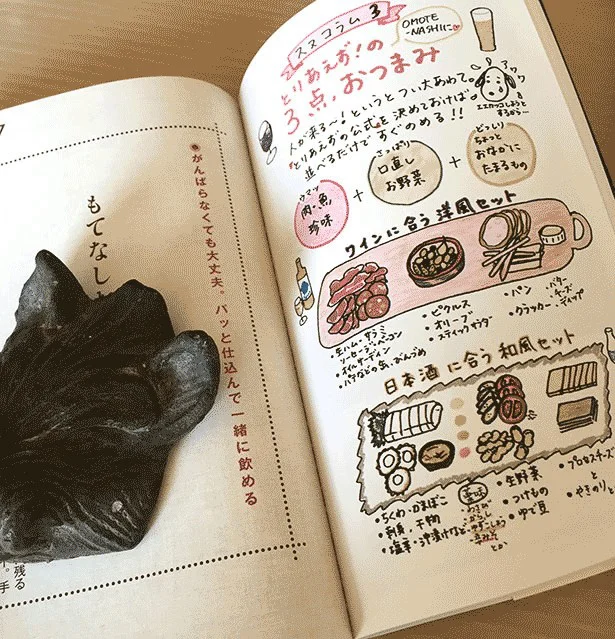 ススコラム 3
OMOTE
-NASHIに♡
とりあえず!の
3点、おつまみ
アワ
ワワ
エエカッコしようと
するから…
人が来る〜!というとつい大あわて。
とりあえずの公式を決めておけば
並べるだけですぐのめる!!
ウマッ
肉・魚
珍味
+
さっぱり
口直し
お野菜
+
どっしり
ちょっと
おなかに
たまるもの
ワインに合う洋風セット
・生ハム・サラミ
ソーセージ・ベーコン
・オイルサーディン
・パテなどの缶、びんづめ
・ピクルス
・オリーブ
・スティックサラダ
・パン
・クラッカー
・バター
・チーズ
・ディップ
日本酒に合う和風セット
・ちくわ・かまぼこ
・刺身・干物
・塩辛・沖漬けなど
薬味
・わさび
・からし
・ゆずこしょう
・辛みそ
とか
・生野菜
・つけもの
・ゆで豆
・プロセスチーズ
と
・やきのり
がんばらなくても大丈夫。パッと仕込んで一緒に飲める
もてなし
残る
手